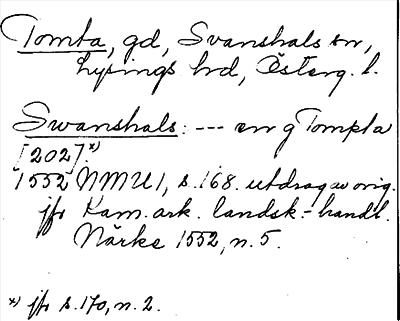 Tomta, gd, Svanshals sn,
Lysings hd, Österg. l.
Swanshals: --- en g Tompta
[202].*)
1552 NMU 1, s. 168. utdrag av orig.
jfr Kam. ark. landsk.-handl.
Närke 1552, n. 5.
*) jfr s. 170, n. 2.